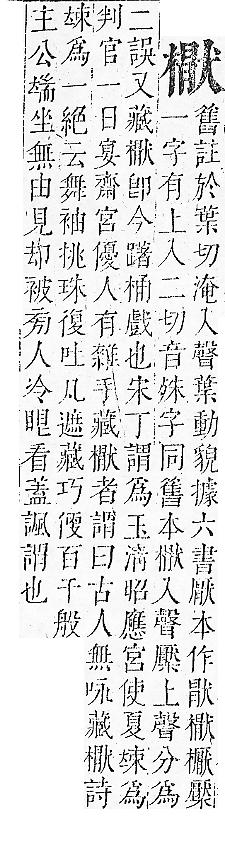 舊註於葉切淹入聲葉動貌據六書厭本作猒檿
一字有上入二切音殊字同舊本入聲檿上聲分為
二誤又藏即今躇桶戲也宋丁謂為玉清昭應宮使夏竦為
判官一日宴齋宮優人有雜手藏者謂曰古人無咏藏詩
竦為一絕云舞袖挑珠復吐凡遮藏巧便百千般
主公端坐無由見却被旁人冷眼看蓋諷謂也